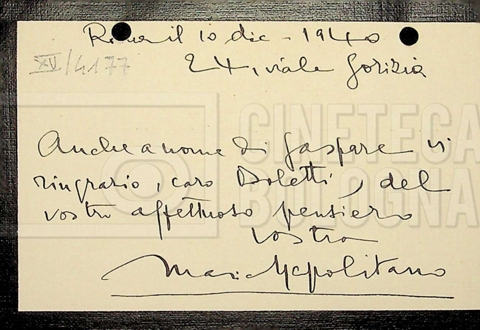 Roma il 10 dic - 1940
XV/4177
24, viale Gorizia
Anche a nome di Gaspare vi
ringrazio, caro Boletti, del
vostro affettuoso pensiero
vostro
Mario Napolitano
CINETECA
BOLOGNA